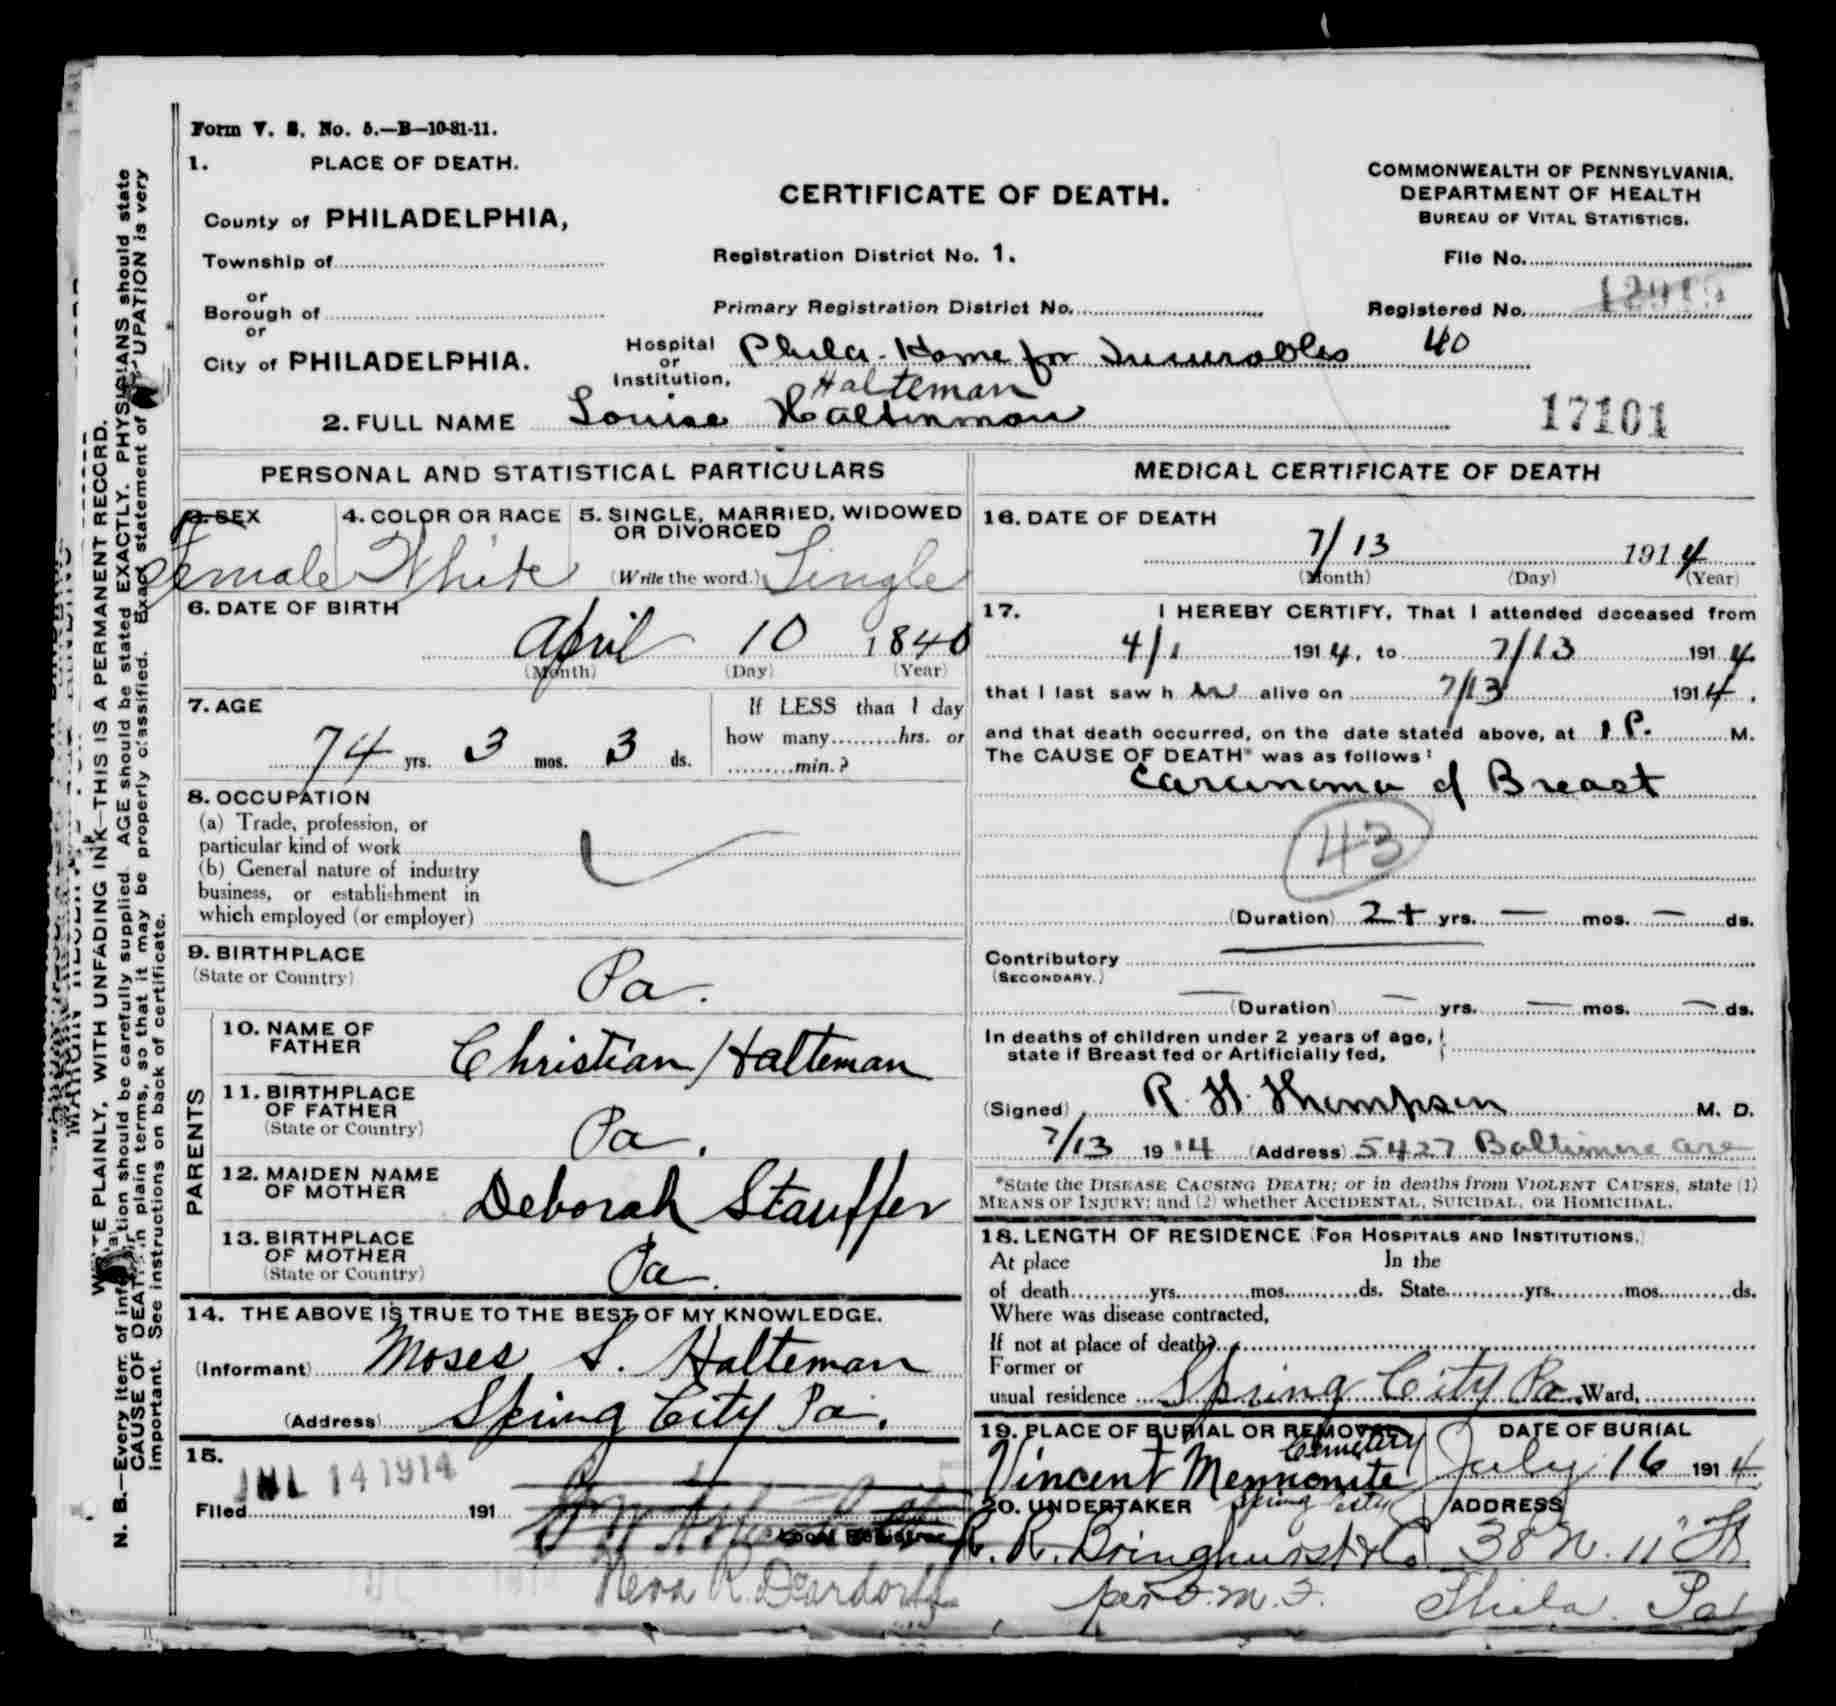 Form V. S. No. 5.—B—10-31-11.
1. PLACE OF DEATH.
County of PHILADELPHIA,
Township of
or
Borough of
or
City of PHILADELPHIA.
CERTIFICATE OF DEATH.
Registration District No. 1.
Primary Registration District No.
Hospital
or
Institution,
Phila. Home for Incurables
COMMONWEALTH OF PENNSYLVANIA.
DEPARTMENT OF HEALTH
BUREAU OF VITAL STATISTICS.
File No.
Registered No.
40
Halteman
2. FULL NAME Louise Haltinman
17101
PERSONAL AND STATISTICAL PARTICULARS
3. SEX
Female
4. COLOR OR RACE
White
5. SINGLE, MARRIED, WIDOWED
OR DIVORCED
(Write the word.) Single
6. DATE OF BIRTH
April 10 1840
(Month) (Day) (Year)
7. AGE
74 yrs. 3 mos. 3 ds.
If LESS than 1 day
how many hrs. or
min.?
8. OCCUPATION
(a) Trade, profession, or
particular kind of work
(b) General nature of industry
business, or establishment in
which employed (or employer)
9. BIRTHPLACE
(State or Country)
Pa.
PARENTS
10. NAME OF
FATHER
Christian Halteman
11. BIRTHPLACE
OF FATHER
(State or Country)
Pa.
12. MAIDEN NAME
OF MOTHER
Deborah Stauffer
13. BIRTHPLACE
OF MOTHER
(State or Country)
Pa.
14. THE ABOVE IS TRUE TO THE BEST OF MY KNOWLEDGE.
(Informant) Moses S. Halteman
(Address) Spring City Pa.
15.
JUL 14 1914
Filed 191
Local Registrar
Neva R. Deardorff
MEDICAL CERTIFICATE OF DEATH
16. DATE OF DEATH
7/13 1914
(Month) (Day) (Year)
17. I HEREBY CERTIFY, That I attended deceased from
4/1 1914, to 7/13 1914
that I last saw h er alive on 7/13 1914.
and that death occurred, on the date stated above, at 1 P. M.
The CAUSE OF DEATH* was as follows:
Carcinoma of Breast
43
(Duration) 2+ yrs. — mos. — ds.
Contributory
(SECONDARY.)
(Duration) — yrs. — mos. — ds.
In deaths of children under 2 years of age,
state if Breast fed or Artificially fed,
(Signed) R. H. Thompson M. D.
7/13 1914 (Address) 5427 Baltimore ave
*State the DISEASE CAUSING DEATH; or in deaths from VIOLENT CAUSES, state (1)
MEANS OF INJURY; and (2) whether ACCIDENTAL, SUICIDAL, OR HOMICIDAL.
18. LENGTH OF RESIDENCE (FOR HOSPITALS AND INSTITUTIONS.)
At place In the
of death yrs. mos. ds. State yrs. mos. ds.
Where was disease contracted,
If not at place of death?
Former or
usual residence Spring City Pa. Ward,
19. PLACE OF BURIAL OR REMOVAL
Cemetery
Vincent Mennonite
Spring City
DATE OF BURIAL
July 16 1914
20. UNDERTAKER
R. R. Bringhurst & Co.
per J. M. F.
ADDRESS
38 N. 11" St
Phila. Pa
WRITE PLAINLY, WITH UNFADING INK—THIS IS A PERMANENT RECORD.
N. B.—Every item of information should be carefully supplied. AGE should be stated EXACTLY. PHYSICIANS should state
CAUSE OF DEATH in plain terms, so that it may be properly classified. Exact statement of OCCUPATION is very
important. See instructions on back of certificate.